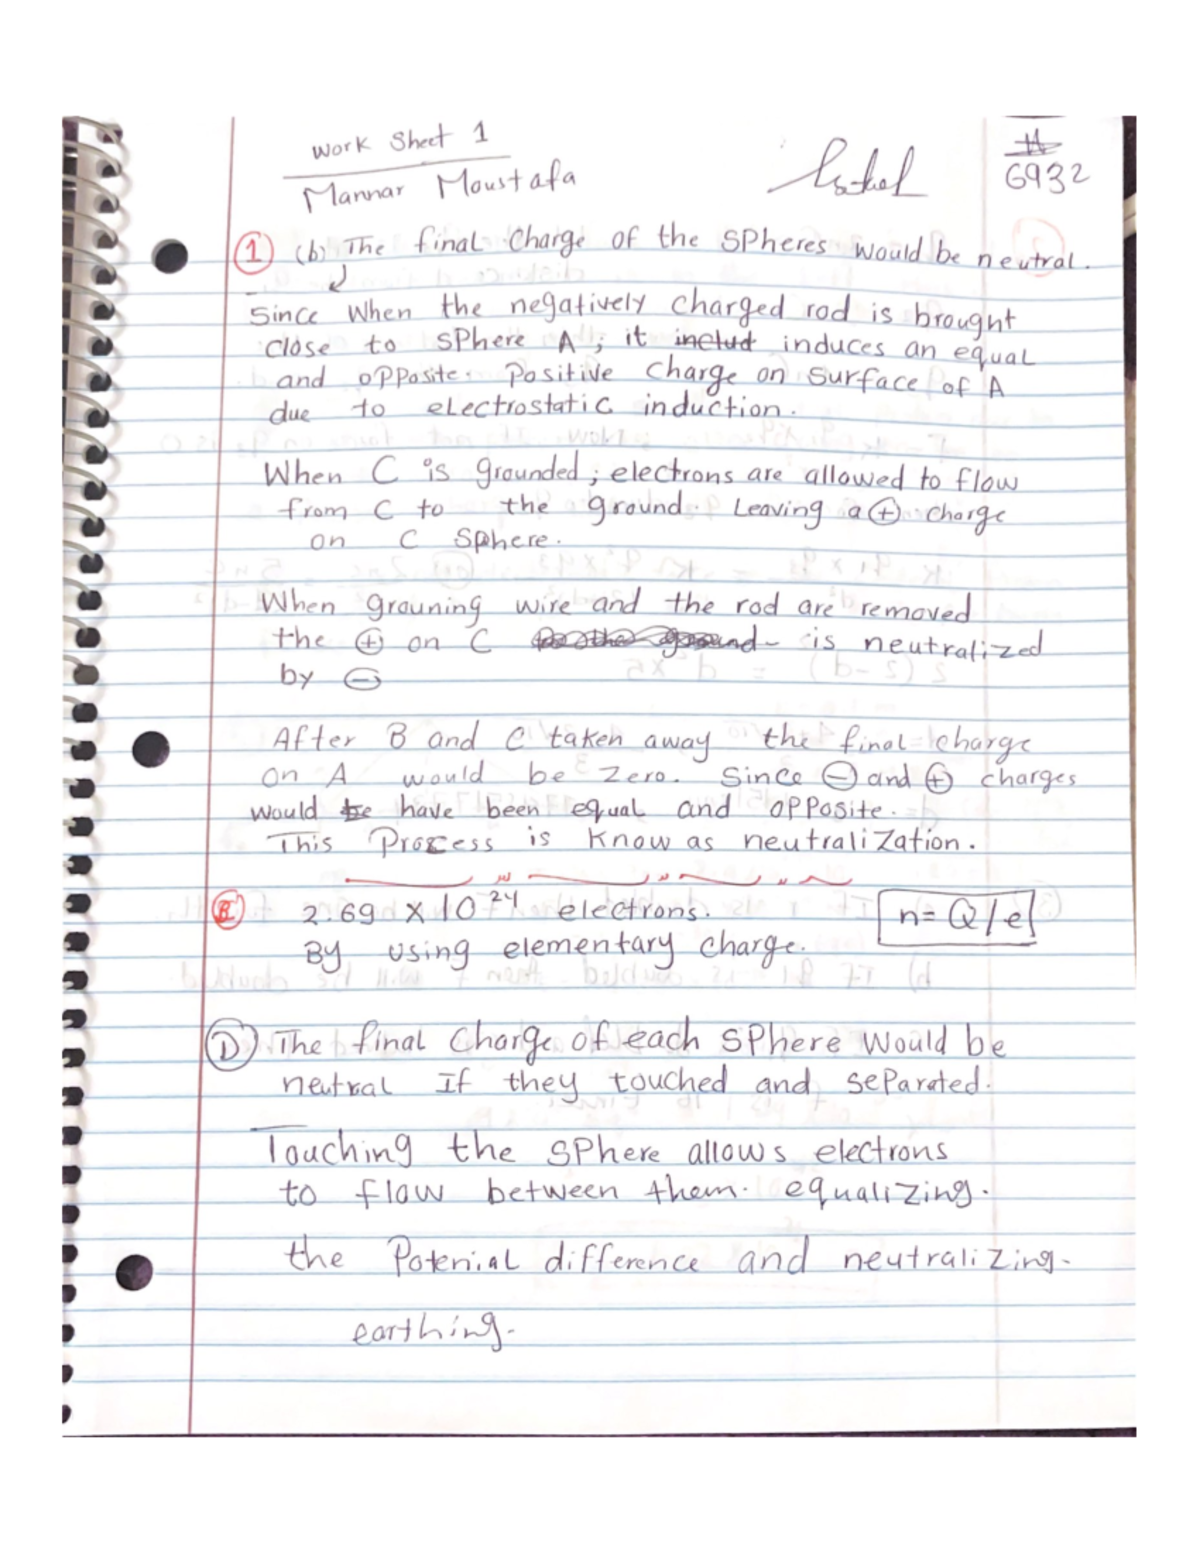 Work Sheet 1
Mannar Moustafa
#
6932
1 (b) The final Charge of the SPheres would be neutral.
Since When the negatively charged rod is brought
close to SPhere A ; it includ induces an equal
and oPPosite. Positive charge on surface of A
due to electrostatic induction.
When C is grounded ; electrons are allowed to flow
from C to the ground. Leaving a + charge
on C Sphere.
When grouning wire and the rod are removed
the + on C is neutralized
by -
After B and C taken away the final charge
on A would be Zero. Since - and + charges
would be have been equal and oPPosite.
This Process is Know as neutraliZation.
2.69 X 10^24 electrons. n= Q/e
By using elementary charge.
D The final Charge of each SPhere would be
neutral If they touched and sePerated.
Touching the SPhere allows electrons
to flow between them. equaliZing.
the Potenial difference and neutraliZing.
earthing.